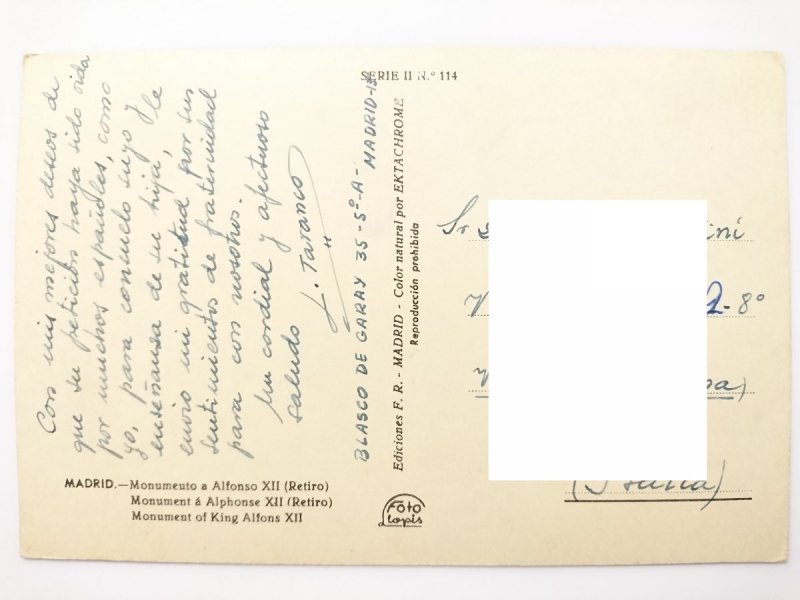 SERIE II N.º 114
Con mis mejores deseos de
que su petición haya sido oida
por muchos españoles, como
yo, para consuelo suyo y
enseñanza de su hija, le
envio mi gratitud por sus
sentimientos de fraternidad
para con nosotros.
Un cordial y afectuoso
saludo
BLASCO DE GARAY 35-5º-A-
MADRID-15
Ediciones F. R. - MADRID - Color natural por EKTACHROME
Reproducción prohibida
Sr.
-8º
(Italia)
MADRID.—Monumeuto a Alfonso XII (Retiro)
Monument á Alphonse XII (Retiro)
Monument of King Alfons XII
Foto
Lopis